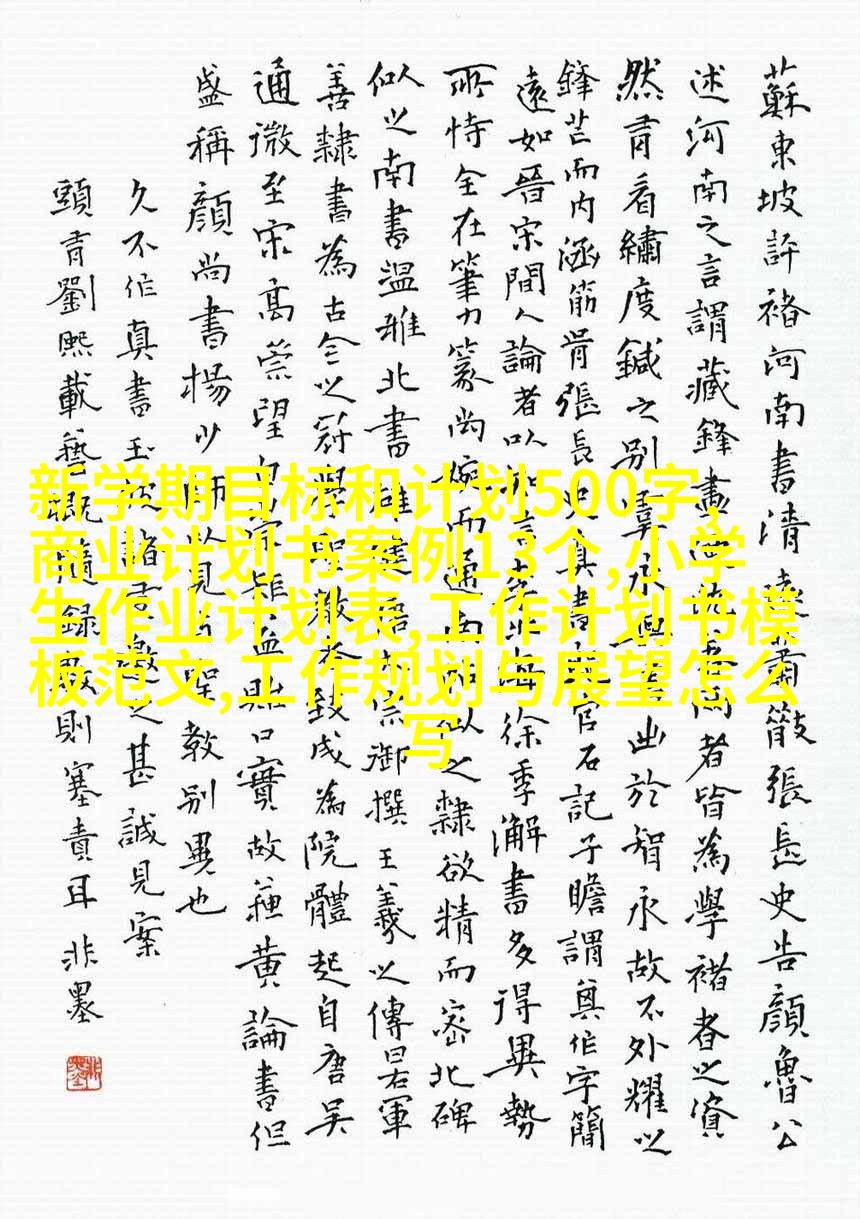 蘇東坡許褚河南書清遠蕭散張長史告顏魯公
述河南之言謂藏鋒畫者皆為學褚者之資
然青看繡度鍼之别出於智永故不外耀以
鋒芒而内涵筋骨張長史真書官石記子瞻謂其作字簡
遠如晉宋間人論者以徐季海書多得異勢
所恃全在筆力篆尚婉而通南似之隸欲精而密北碑
似之南書温雅北書雄健御撰王羲之傳是軍
善隸書為古今以聖教致成為院體起自唐吳
通微至宋高望口實故蘇黄論書但
盛稱顏尚書楊少師以見聖教别異也
久不作真書諸君邀之甚誠見案
頭有劉熙載藝概隨録數則塞責耳非墨
新学期目标和计划500字,
商业计划书案例13个,小学
生作业计划表,工作计划书模
板范文,工作规划与展望怎么
写